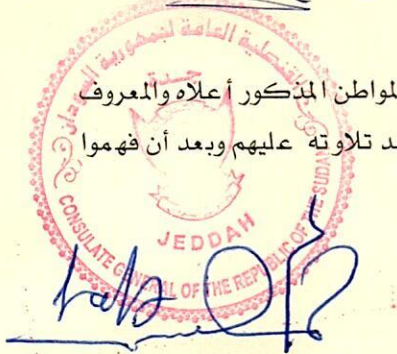 القنصلية العامة لجمهورية السودان
جدة
لمواطن المذكور أعلاه والمعروف
د تلاوته عليهم وبعد أن فهموا
CONSULATE GENERAL OF THE REPUBLIC OF THE SUDAN
JEDDAH